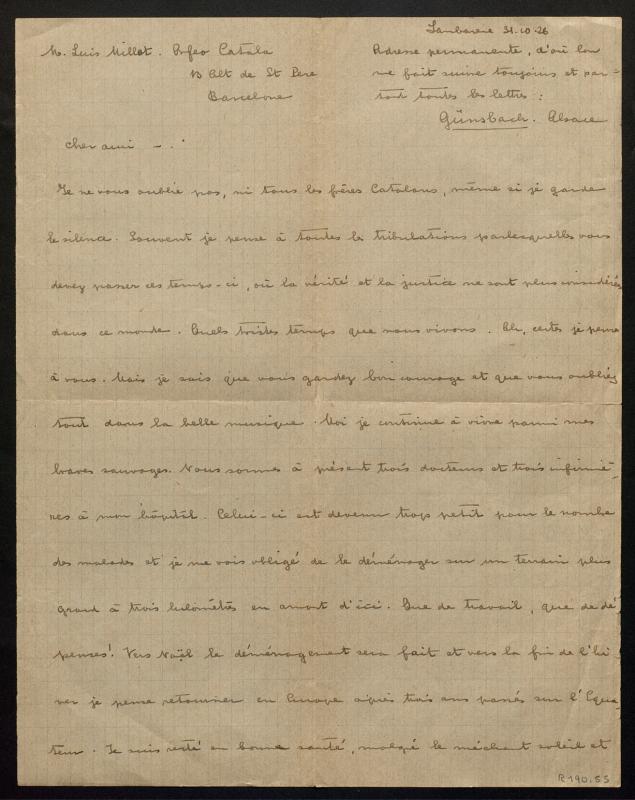 Lambarene 31.10.26
M. Luis Millet. Orfeo Catala
13 Alt de St Pere
Barcelone
Adresse permanente, d'où l'on
me fait suivre toujours et par-
tout toutes les lettres :
Günsbach. Alsace
Cher ami -.
Je ne vous oublie pas, ni tous les frères Catalans, même si je garde
le silence. Souvent je pense à toutes les tribulations par lesquelles vous
devez passer ces temps-ci, où la vérité et la justice ne sont plus considérés
dans ce monde. Quels tristes temps que nous vivons. Oh, certes je pense
à vous. Mais je sais que vous gardez bon courage et que vous oubliez
tout dans la belle musique. Moi je continue à vivre parmi mes
braves sauvages. Nous sommes à présent trois docteurs et trois infirmiè-
res à mon hôpital. Celui-ci est devenu trop petit pour le nombre
des malades et je me vois obligé de le déménager sur un terrain plus
grand à trois kilomètres en amont d'ici. Que de travail, que de dé-
penses! Vers Noël le déménagement sera fait et vers la fin de l'hi-
ver je pense retourner en Europe après trois ans passés sur l'Equa-
teur. Je suis resté en bonne santé, malgré le méchant soleil et
R 190.55